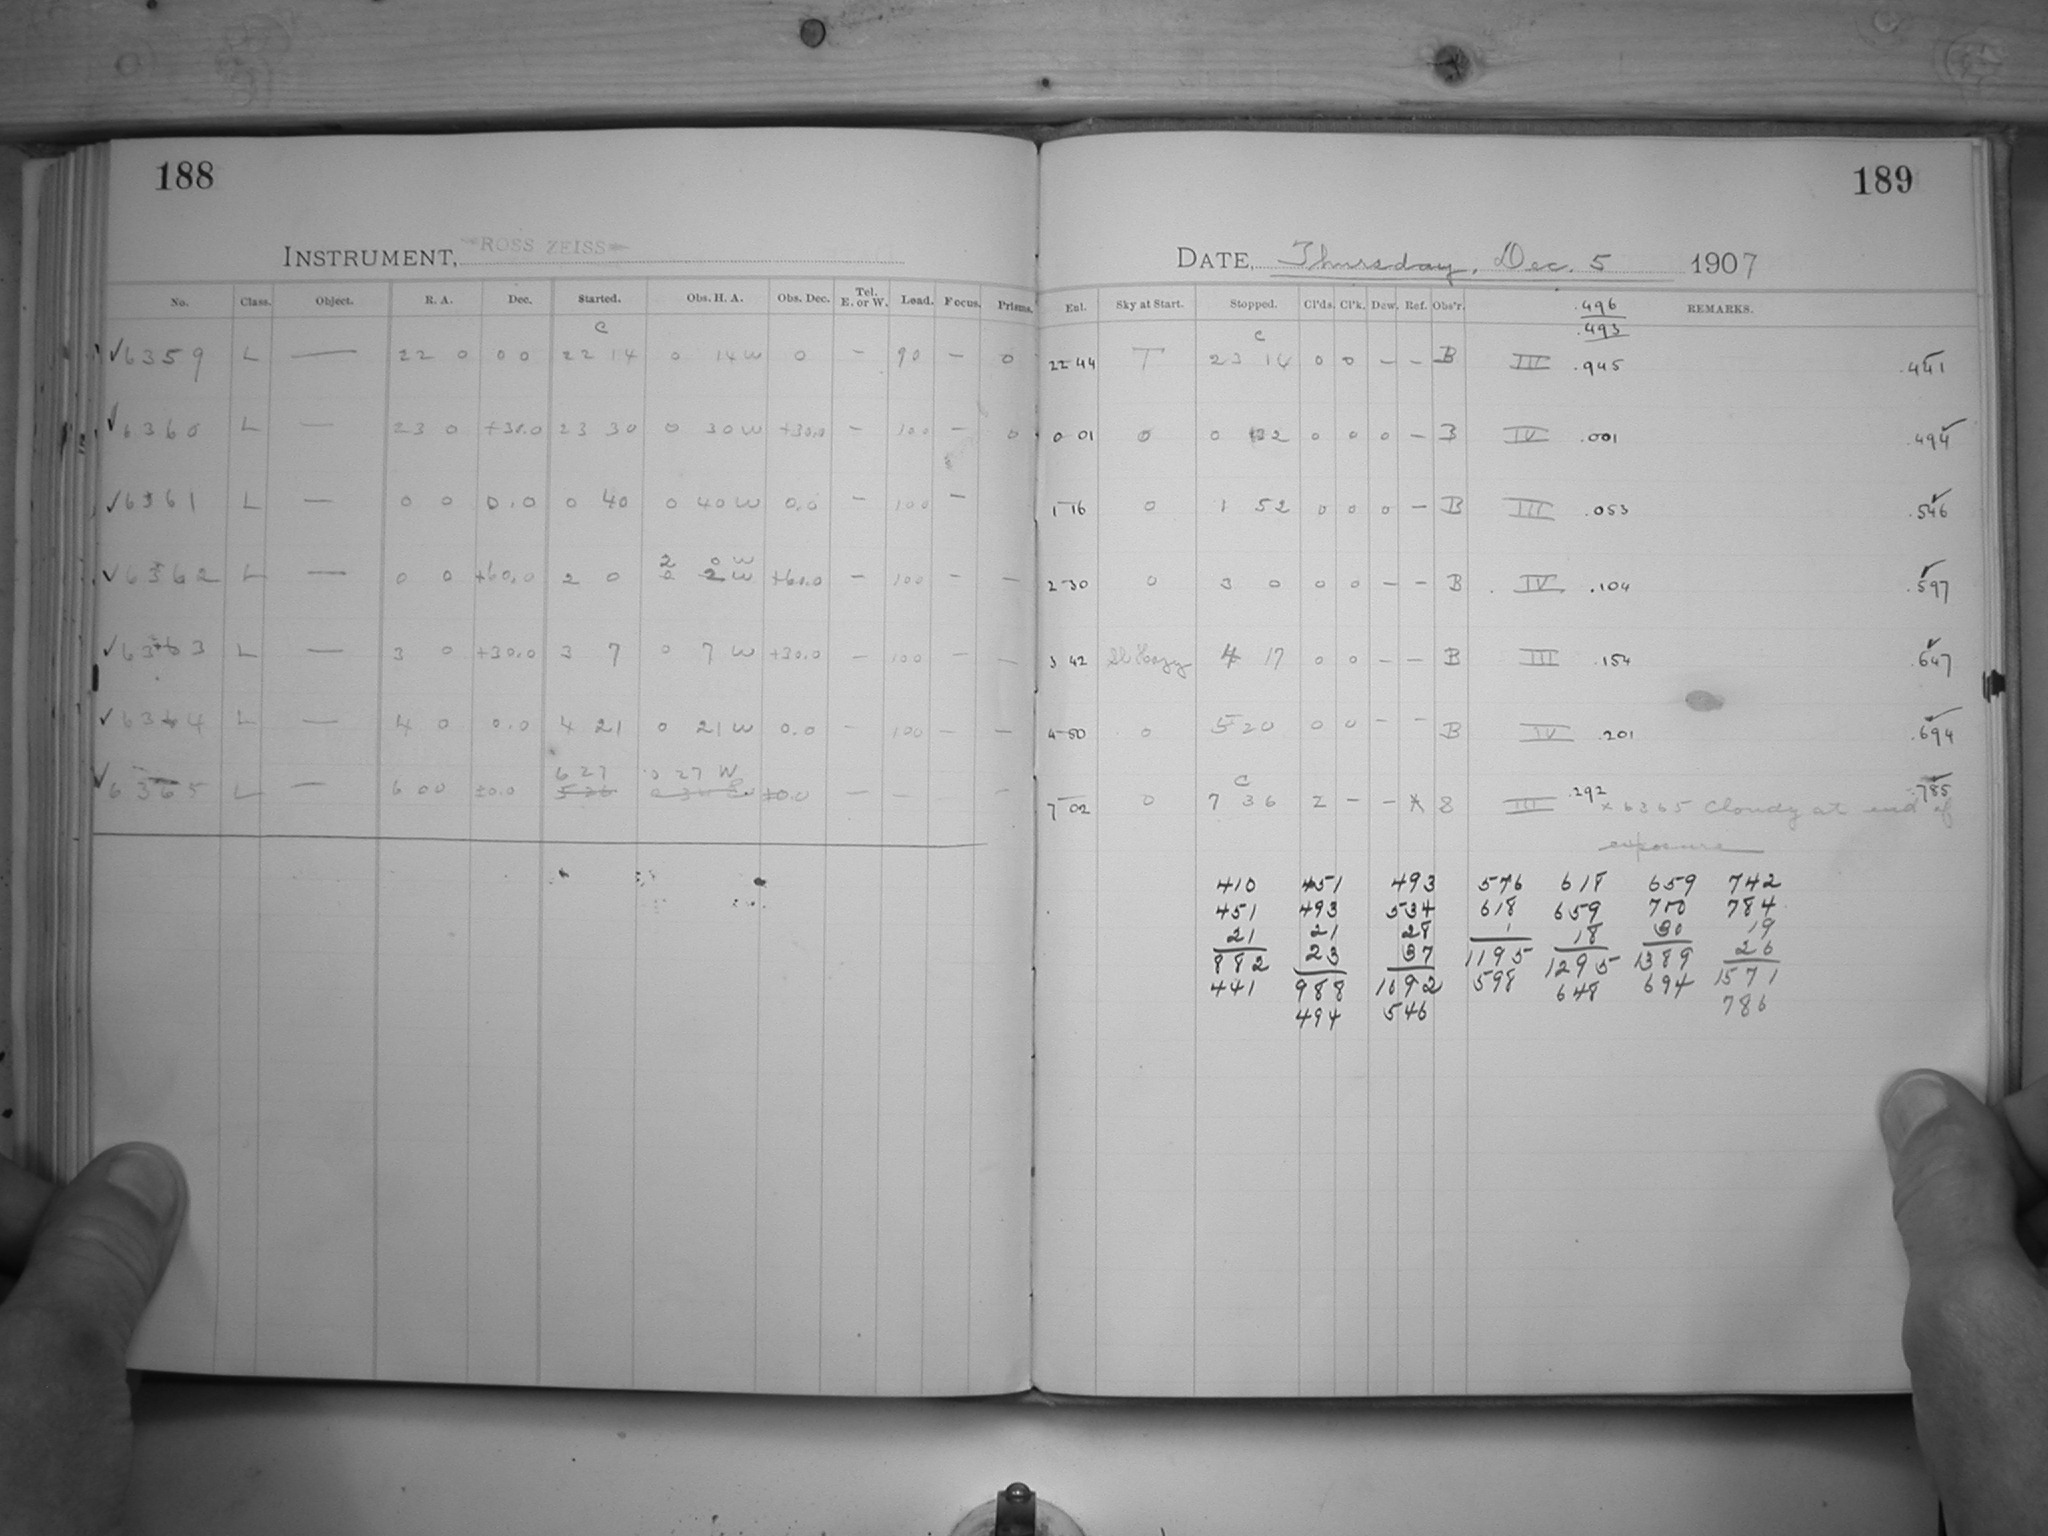 188
INSTRUMENT, ROSS ZEISS
No. Class. Object. R. A. Dec. Started. Obs. H. A. Obs. Dec. Tel. E. or W. Load. Focus. Prisms.
C
✓6359 L — 22 0 0 0 22 14 0 14 W 0 — 90 — 0
✓6360 L — 23 0 +30.0 23 30 0 30 W +30.0 — 100 — 0
✓6361 L — 0 0 0.0 0 40 0 40 W 0.0 — 100 —
2 0 W
✓6362 L — 0 0 +60.0 2 0 0 2 W +60.0 — 100 — —
✓6363 L — 3 0 +30.0 3 7 0 7 W +30.0 — 100 — —
✓6364 L — 4 0 0.0 4 21 0 21 W 0.0 — 100 — —
6 27 0 27 W
✓6365 L — 6 00 ±0.0 ±0.0 — — — —
189
DATE, Thursday, Dec. 5 1907
Enl. Sky at Start. Stopped. Cl'ds. Cl'k. Dew. Ref. Obs'r. REMARKS.
.496
.493
C
22 44 T 23 14 0 0 — — B III .945 .441
0 01 0 0 32 0 0 0 — B IV .001 .494
1 16 0 1 52 0 0 0 — B III .053 .546
2 30 0 3 0 0 0 — — B IV .104 .597
3 42 Sl. Hazy 4 17 0 0 — — B III .154 .647
4 50 0 5 20 0 0 — — B IV .201 .694
C
7 02 0 7 36 2 — — * 8 III .292 .785
× 6365 Cloudy at end of
exposure
410 451 493 576 618 659 742
451 493 534 618 659 700 784
21 21 28 1 18 30 19
882 23 37 1195 1295 1389 26
441 988 1092 598 648 694 1571
494 546 786